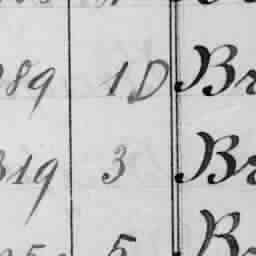 89 1D Br
319 3 Br
5 Br